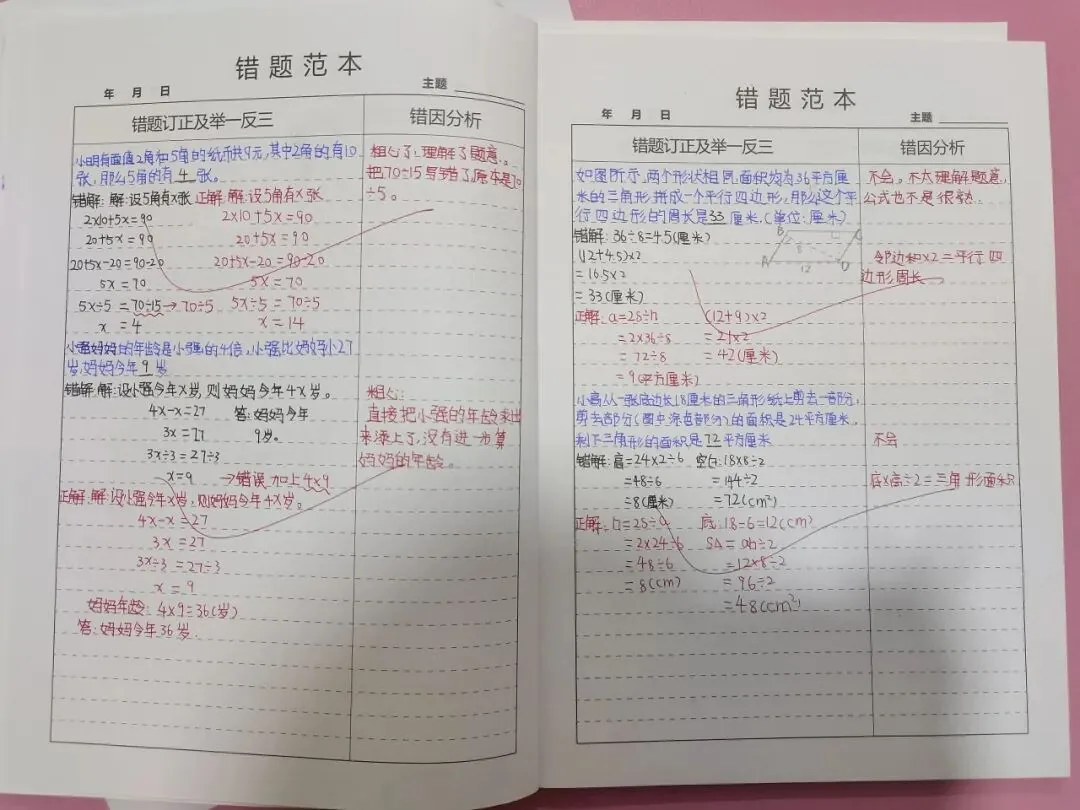 错题范本
年 月 日 主题
错题订正及举一反三 错因分析
小明有面值2角和5角的纸币共9元,其中2角的有10
张,那么5角的有 4 张。
错解:解:设5角有x张 正解:解:设5角有x张
2x10+5x=90 2x10+5x=90
20+5x=90 20+5x=90
20+5x-20=90-20 20+5x-20=90-20
5x=70 5x=70
5x÷5=70÷15→70÷5 5x÷5=70÷5
x=4 x=14
粗心了,理解了题意。
把70÷15写错了,原本是70
÷5。
小强妈妈的年龄是小强的4倍,小强比妈妈小27
岁,妈妈今年 9 岁
错解:解:设小强今年x岁,则妈妈今年4x岁。
4x-x=27 答:妈妈今年
3x=27 9岁。
3x÷3=27÷3
x=9 →错误,加上4x9
粗心:
直接把小强的年龄求出
来添上了,没有进一步算
妈妈的年龄。
正解:解:设小强今年x岁,则妈妈今年4x岁。
4x-x=27
3x=27
3x÷3=27÷3
x=9
妈妈年龄:4x9=36(岁)
答:妈妈今年36岁.
错题范本
年 月 日 主题
错题订正及举一反三 错因分析
如图所示,两个形状相同,面积均为36平方厘
米的三角形拼成一个平行四边形,那么这个平
行四边形的周长是33厘米.(单位:厘米)
错解:36÷8=4.5(厘米)
(12+4.5)x2
=16.5x2
=33(厘米)
B C
8
A 12 D
不会。不太理解题意,
公式也不是很熟.
邻边和x2=平行四
边形周长
正解:a=2S÷h (12+9)x2
=2x36÷8 =21x2
=72÷8 =42(厘米)
=9(平方厘米)
小高从一张底边长18厘米的三角形纸上剪去一部分,
剪去部分(图中涂色部分)的面积是24平方厘米,
剩下三角形的面积是72平方厘米
错解:高=24x2÷6 空白:18x8÷2
=48÷6 =144÷2
=8(厘米) =72(cm²)
不会
底x高÷2=三角形面积
正解:h=2S÷a 底:18-6=12(cm)
=2x24÷6 S△=ah÷2
=48÷6 =12x8÷2
=8(cm) =96÷2
=48(cm²)